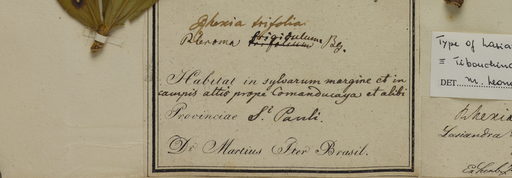 Rhexia trifolia
Pleroma trifolium
Habitat in sylvarum margine et in
campis altis prope Comanducaya et alibi
Provinciae S.t Pauli.
Dr Martius Iter Brasil.
Type of Lasia
= Tibouchina
DET.
Rhexia
Lasiandra